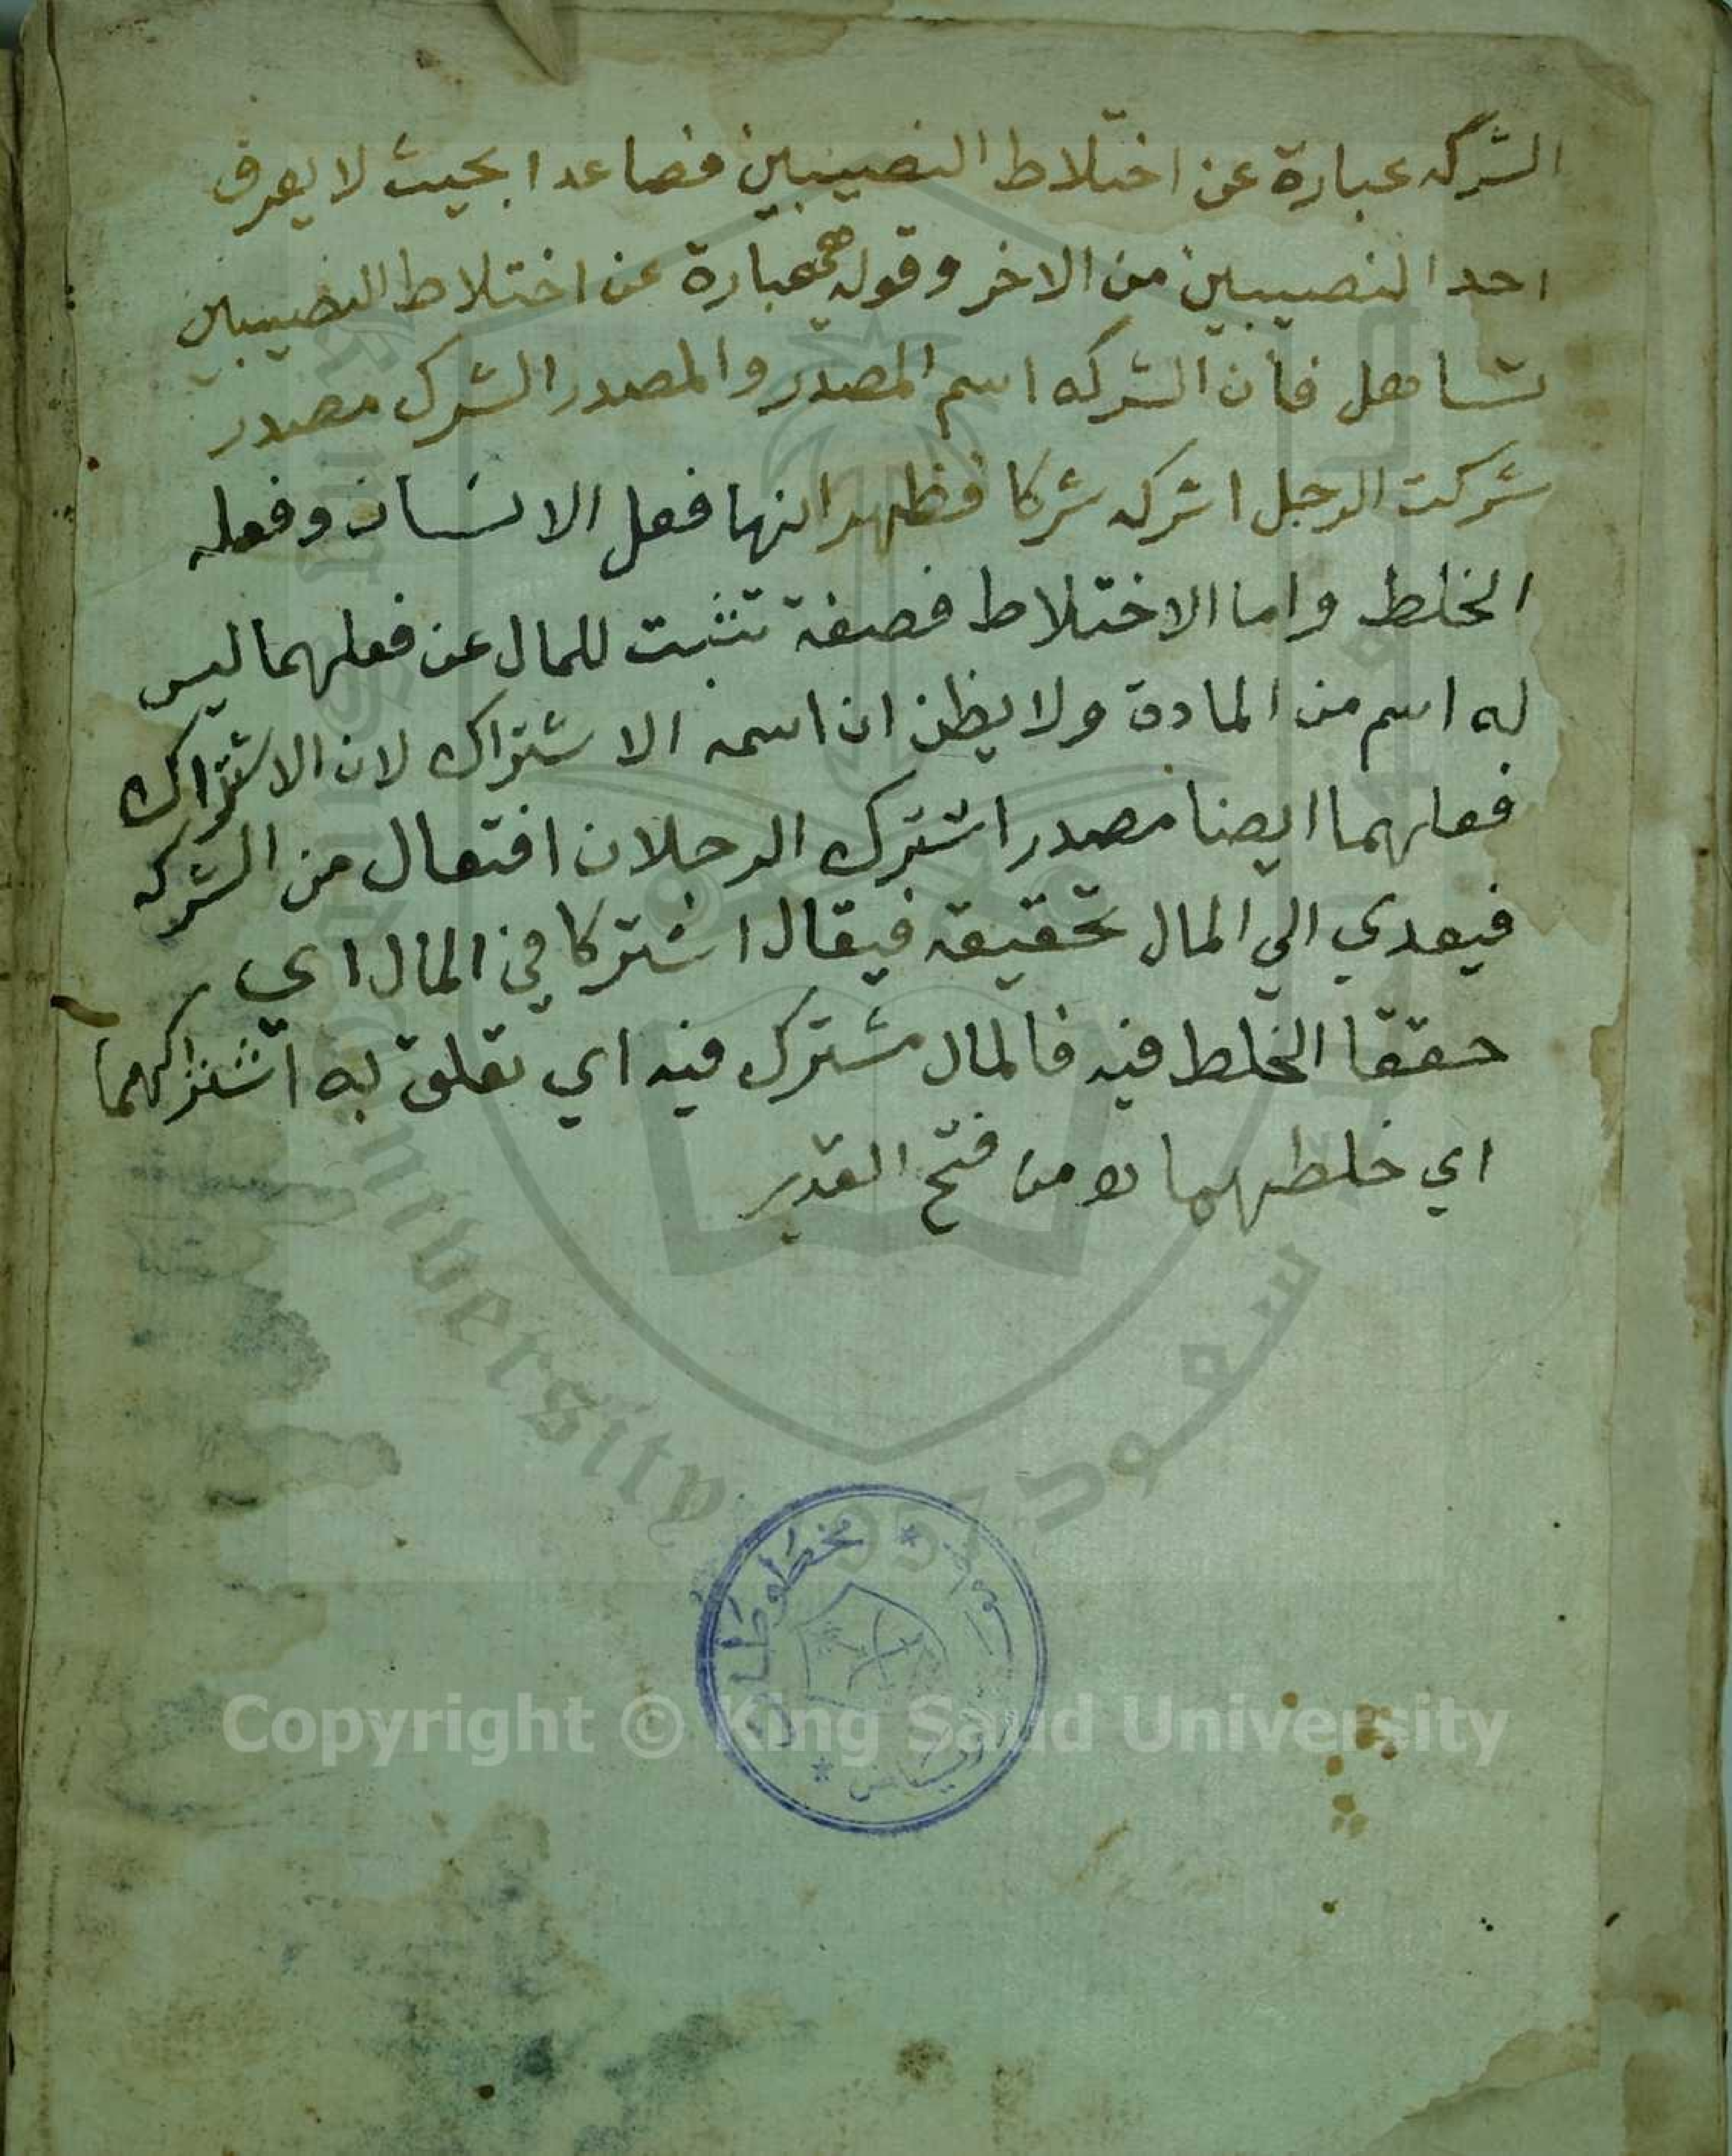 الشركه عبارة عن اختلاط النصيبين فصاعدا بحيث لا يعرف
احد النصيبين من الاخر وقوله هي عبارة عن اختلاط النصيبين
تساهل فان الشركه اسم المصدر والمصدر الشرك مصدر
شركت الرجل اشركه شركا فظهر انها فعل الانسان وفعله
الخلط واما الاختلاط فصفة تثبت للمال عن فعلهما ليس
له اسم من المادة ولا يظن ان اسمه الاشتراك لان الاشتراك
فعلهما ايضا مصدر اشترك الرجلان افتعال من الشركه
فيعدي الي المال تحقيقه فيقال اشتركا في المال اي
حققا الخلط فيه فالمال مشترك فيه اي تعلق به اشتراكهما
اي خلطهما من فتح القدير
مخطوطات
الرياض
سعود
University
Copyright © King Saud University